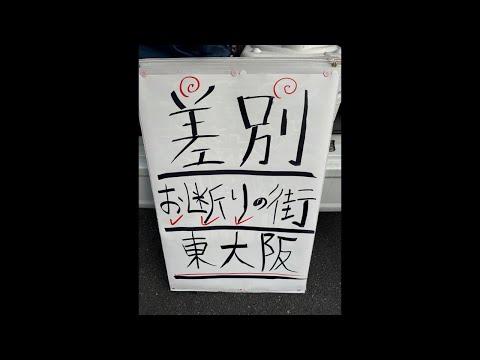 差別
お断りの街
東大阪